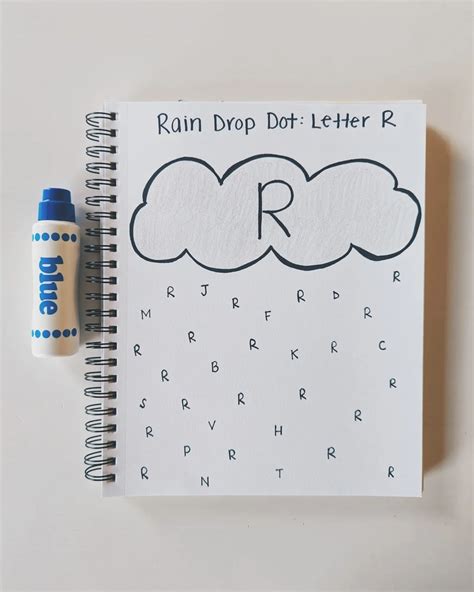 Rain Drop Dot: Letter R
R
R
R J R R D
M F R
R R R K R C
R B R
S R R R R
R V H
P R R
R N T R
blue